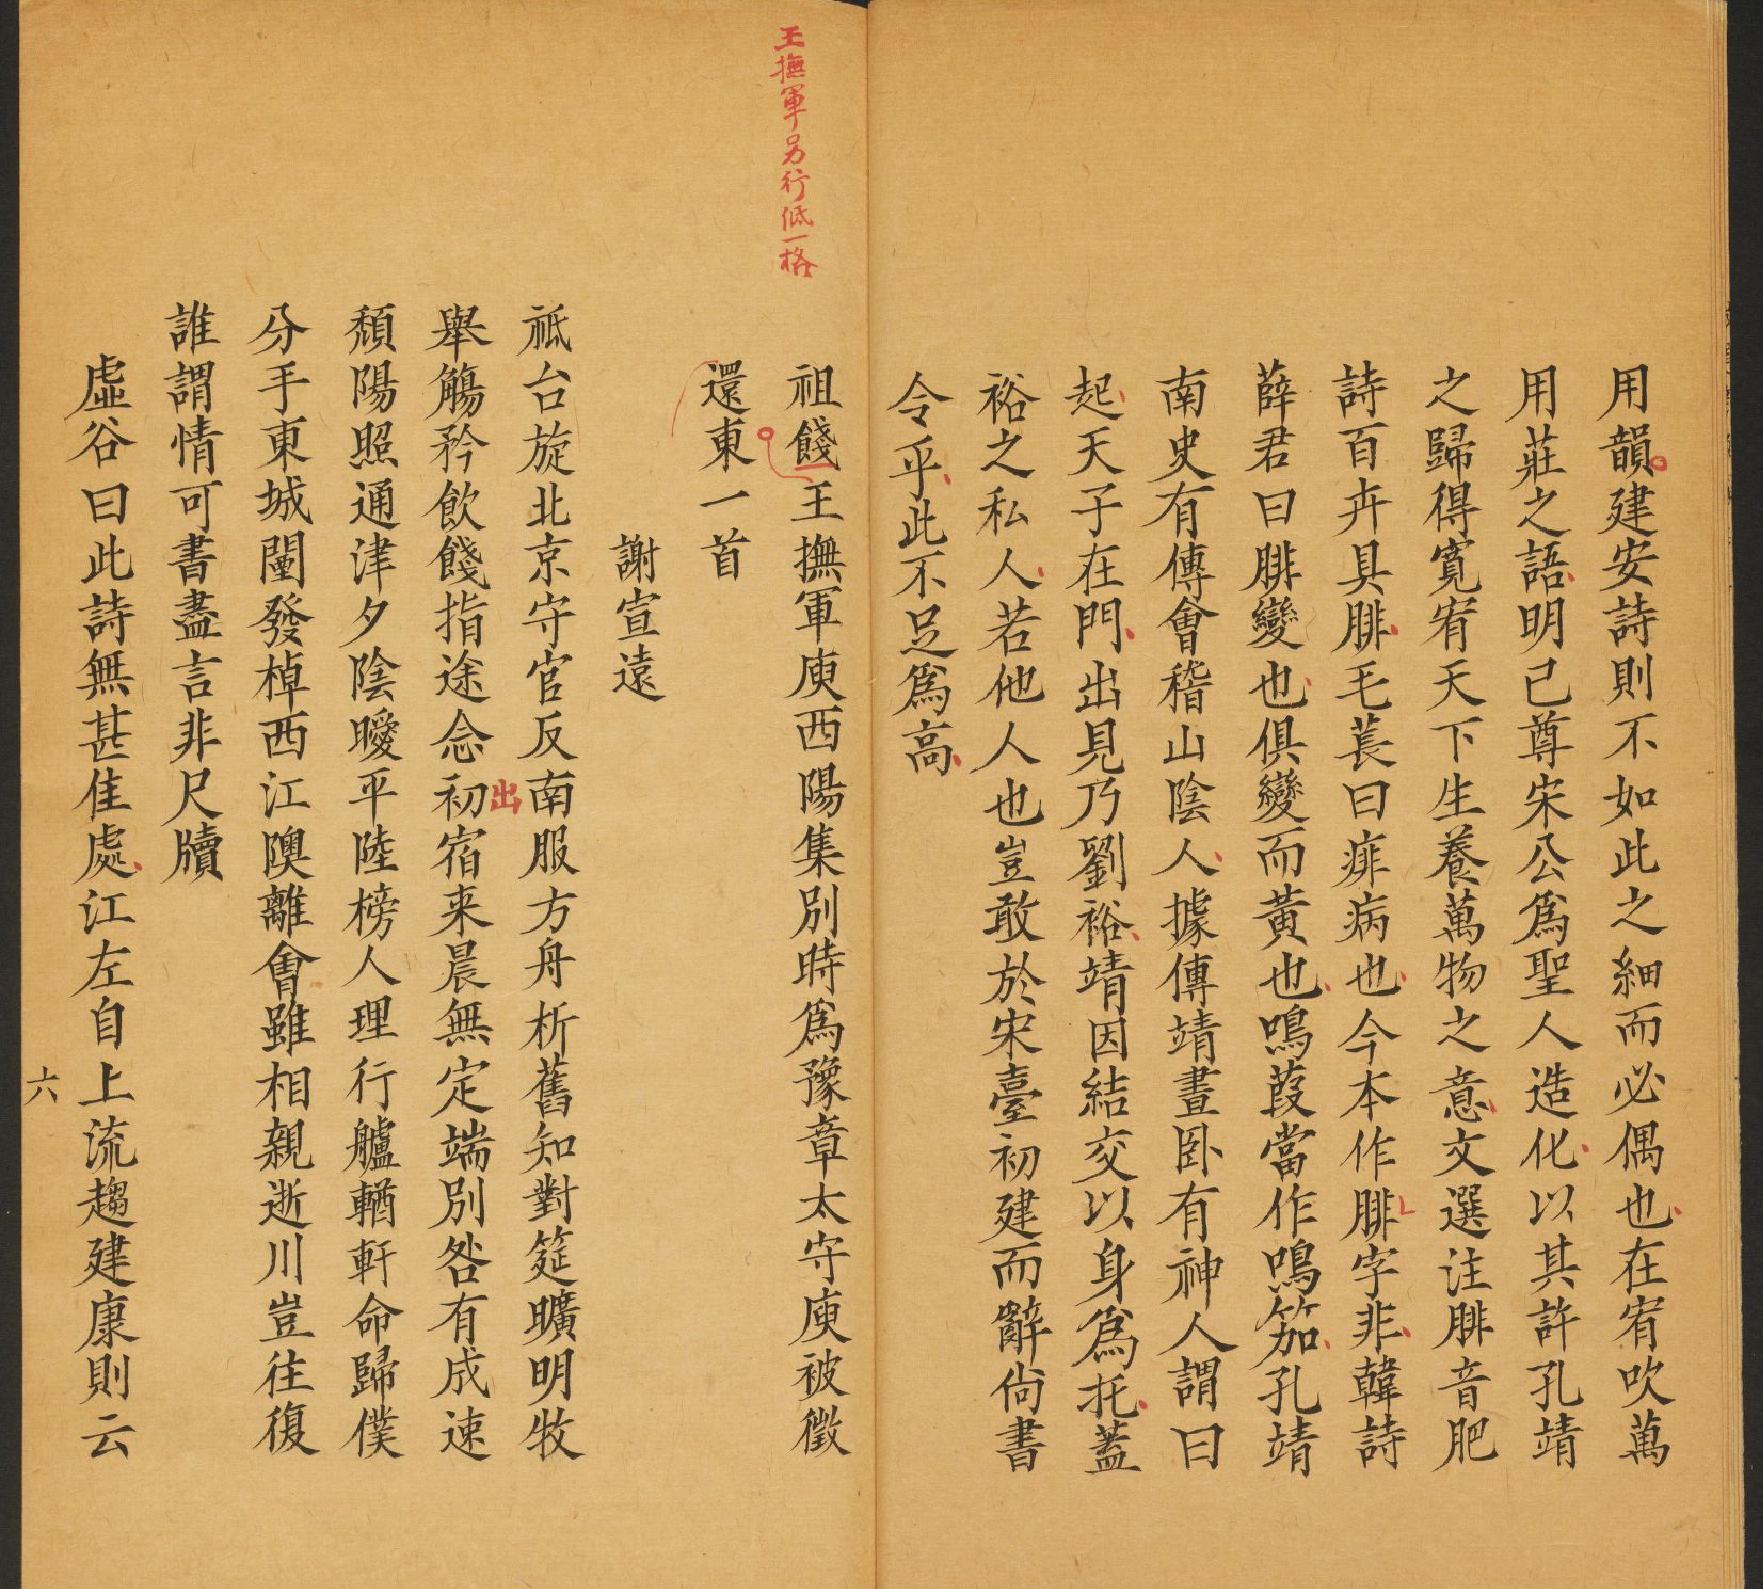 用韻建安詩則不如此之細而必偶也在宥吹萬
用莊之語明已尊宋公爲聖人造化以其許孔靖
之歸得寛宥天下生養萬物之意文選注腓音肥
詩百卉具腓毛萇曰痱病也今本作腓字非韓詩
薛君曰腓變也俱變而黃也鳴葭當作鳴笳孔靖
南史有傳會稽山陰人據傳靖晝卧有神人謂曰
起天子在門出見乃劉裕靖因結交以身爲托蓋
裕之私人若他人也豈敢於宋臺初建而辭尙書
令乎此不足爲高
王撫軍另行低一格
祖餞王撫軍庾西陽集別時爲豫章太守庾被徵
還東一首
謝宣遠
祗台旋北京守官反南服方舟析舊知對筵曠明牧
舉觴矜飲餞指途念初宿来晨無定端別咎有成速
出
頹陽照通津夕陰曖平陸榜人理行艫輶軒命歸僕
分手東城闉發棹西江隩離會雖相親逝川豈往復
誰謂情可書盡言非尺牘
虛谷曰此詩無甚佳處江左自上流趨建康則云
六